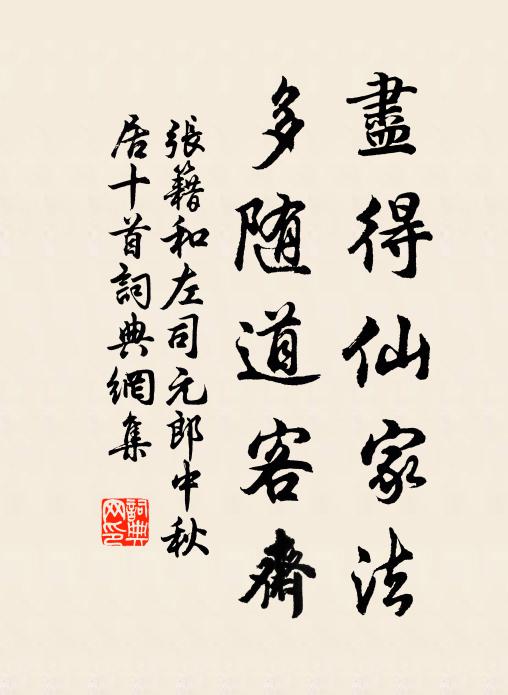 盡得仙家法
多随道客齋
張籍和左司元郎中秋
居十首詞典網集
詞典
网印